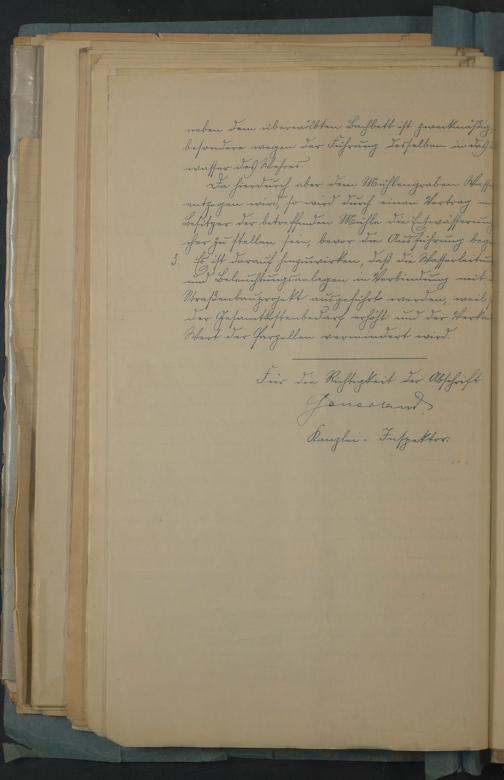 neben dem überwölbten Bachbett ist zweckmäßig
besondere wegen der Führung desselben in das
wasser des Wehres.
Da hierdurch aber dem Mühlengraben
entzogen wird, so wird durch einen Vertrag
Besitzer der betreffenden Mühle die Entwässerung
cher zu stellen sein, bevor die Ausführung
3. Es ist darauf hinzuwirken, daß die Wasserleitun
und Beleuchtungsanlagen in Verbindung mit
Straßenbauprojekt ausgeführt werden, weil
der Gesamtkostenbedarf erhöht und der Verkau
Wert der Parzellen vermindert wird.
Für die Richtigkeit der Abschrift
Kanzlei-Inspektor.